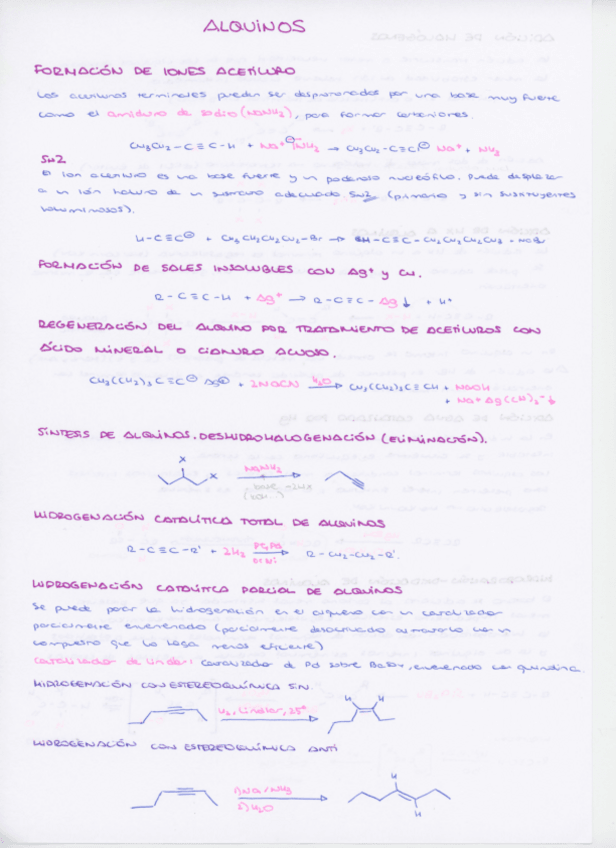 ALQUINOS
FORMACIÓN DE IONES ACETILURO
Los acetilenos terminales pueden ser desprotonados por una base muy fuerte
como el amiduro de sodio (NaNH₂), para formar carbaniones.
CH₃CH₂-C≡C-H + Na⁺ ⊖:NH₂ → CH₃CH₂-C≡C⊖ Na⁺ + NH₃
SN2
El ion acetiluro es una base fuerte y un poderoso nucleófilo. Puede desplazar
a un ión haluro de un sustrato adecuado. SN2 (primario y sin sustituyentes
voluminosos).
H-C≡C⊖ + CH₃CH₂CH₂CH₂-Br → H-C≡C-CH₂CH₂CH₂CH₃ + NaBr
FORMACIÓN DE SALES INSOLUBLES CON Ag⁺ y Cu.
R-C≡C-H + Ag⁺ → R-C≡C-Ag↓ + H⁺
REGENERACIÓN DEL ALQUINO POR TRATAMIENTO DE ACETILUROS CON
ÁCIDO MINERAL O CIANURO ACUOSO.
CH₃(CH₂)₃C≡C⊖ Ag⊕ + 2NaCN H₂O → CH₃(CH₂)₃C≡CH + NaOH
+ Na⁺ Ag(CN)₂⁻↓
SÍNTESIS DE ALQUINOS. DESHIDROHALOGENACIÓN (ELIMINACIÓN).
X
X
NaNH₂
base
HIDROGENACIÓN CATALÍTICA TOTAL DE ALQUINOS
R-C≡C-R' + 2H₂ Pt, Pd → R-CH₂-CH₂-R'.
o Ni
HIDROGENACIÓN CATALÍTICA PARCIAL DE ALQUINOS
Se puede parar la hidrogenación en el alqueno con un catalizador
parcialmente envenenado (parcialmente desactivado al tratarlo con un
compuesto que lo haga menos eficiente)
Catalizador de Lindlar: Catalizador de Pd sobre BaSO₄, envenenado con quinolina.
HIDROGENACIÓN CON ESTEREOQUÍMICA SIN.
H₂, Lindlar, 25°
H H
HIDROGENACIÓN CON ESTEREOQUÍMICA ANTI
1) Na/NH₃
2) H₂O
H
H